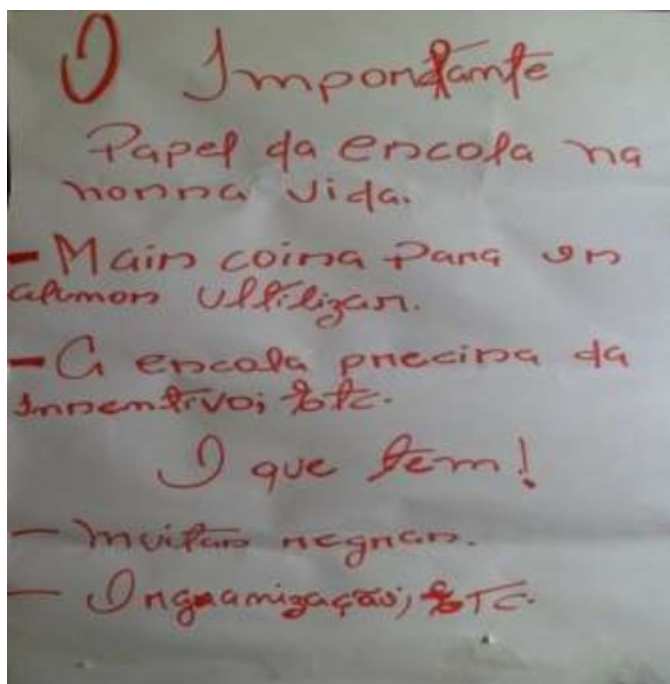 O Importante
Papel da escola na
nossa vida.
- Mais coisa Para os
alunos Ultilizar.
- A escola precisa da
Insentivo; etc.
O que tem!
- muitas regras.
- Orguamização; eTC.